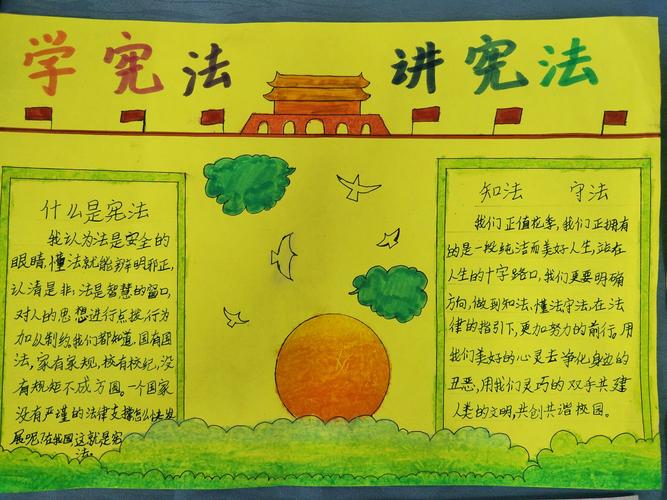 学宪法 讲宪法
什么是宪法
我认为法是安全的
眼睛,懂法就能辨明邪正,
认清是非;法是智慧的窗口,
对人的思想进行点拨,行为
加以制约。我们都知道,国有国
法,家有家规,校有校纪,没
有规矩不成方圆。一个国家
没有严谨的法律支撑怎么快发
展呢?在我国,这就是宪
法。
知法 守法
我们正值花季,我们正拥有
的是一段纯洁而美好人生,站在
人生的十字路口,我们更要明确
方向,做到知法、懂法守法,在法
律的指引下,更加努力的前行。用
我们美好的心灵去净化身边的
丑恶,用我们灵巧的双手共建
人类的文明,共创共谐校园。